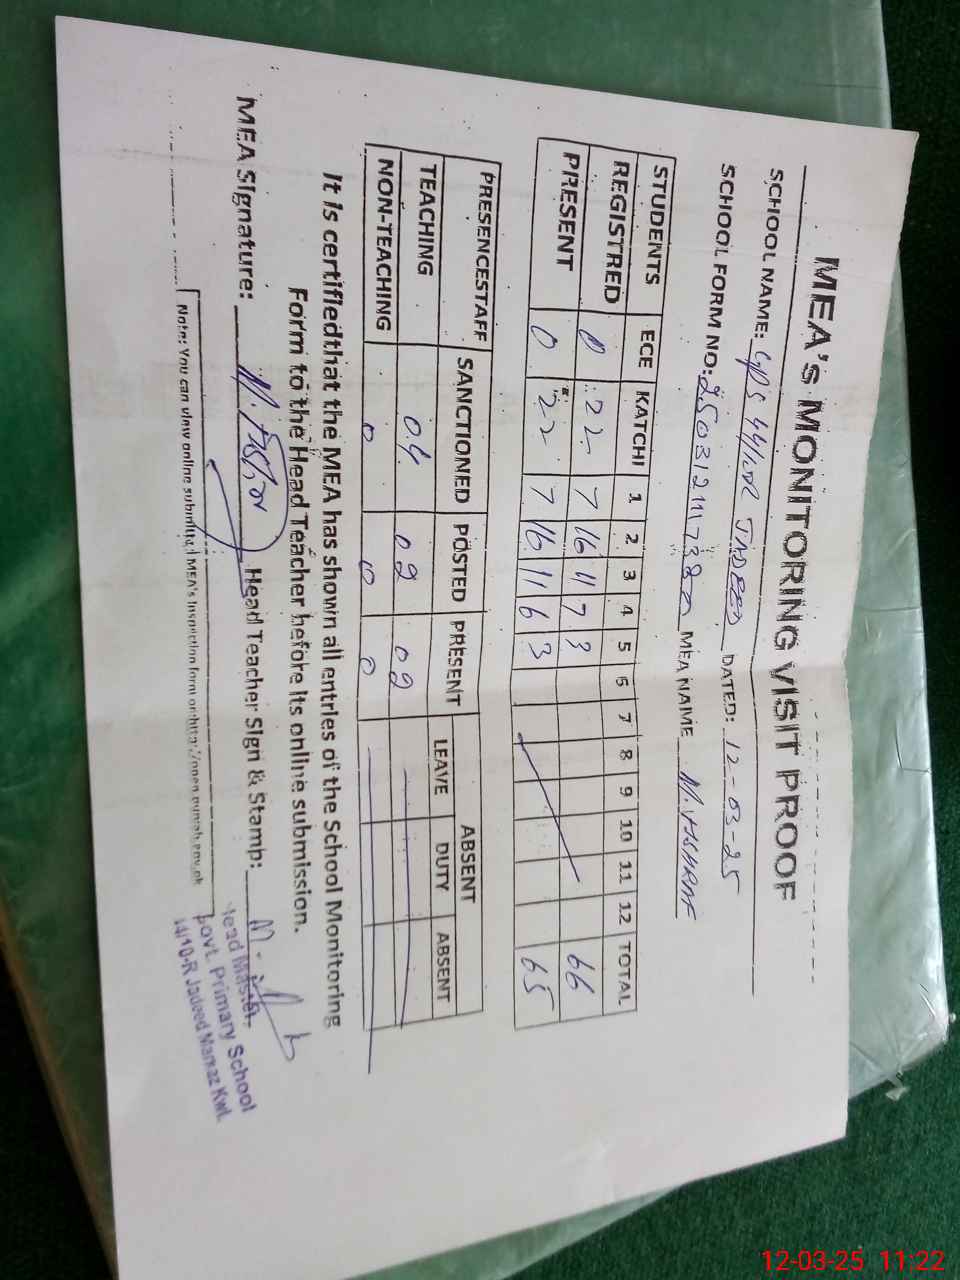 MEA'S MONITORING VISIT PROOF
SCHOOL NAME: GPS 44/10R JADEED DATED: 12-03-25
SCHOOL FORM NO: MEA NAME M. ASHRAF
STUDENTS ECE KATCHI 1 2 3 4 5 6 7 8 9 10 11 12 TOTAL
REGISTRED 0 22 7 16 11 7 3 66
PRESENT 0 22 7 16 11 6 3 65
PRESENCESTAFF SANCTIONED POSTED PRESENT ABSENT
LEAVE DUTY ABSENT
TEACHING 04 02 02
NON-TEACHING 0 0 0
It is certifiedthat the MEA has shown all entries of the School Monitoring
Form to the Head Teacher before its online submission.
MEA Signature: Head Teacher Sign & Stamp:
Head Master
Govt. Primary School
44/10-R Jadeed Markaz Kwl.
Note: You can view online submitted MEA's inspection form on:http://open.punjab.gov.pk
12-03-25 11:22